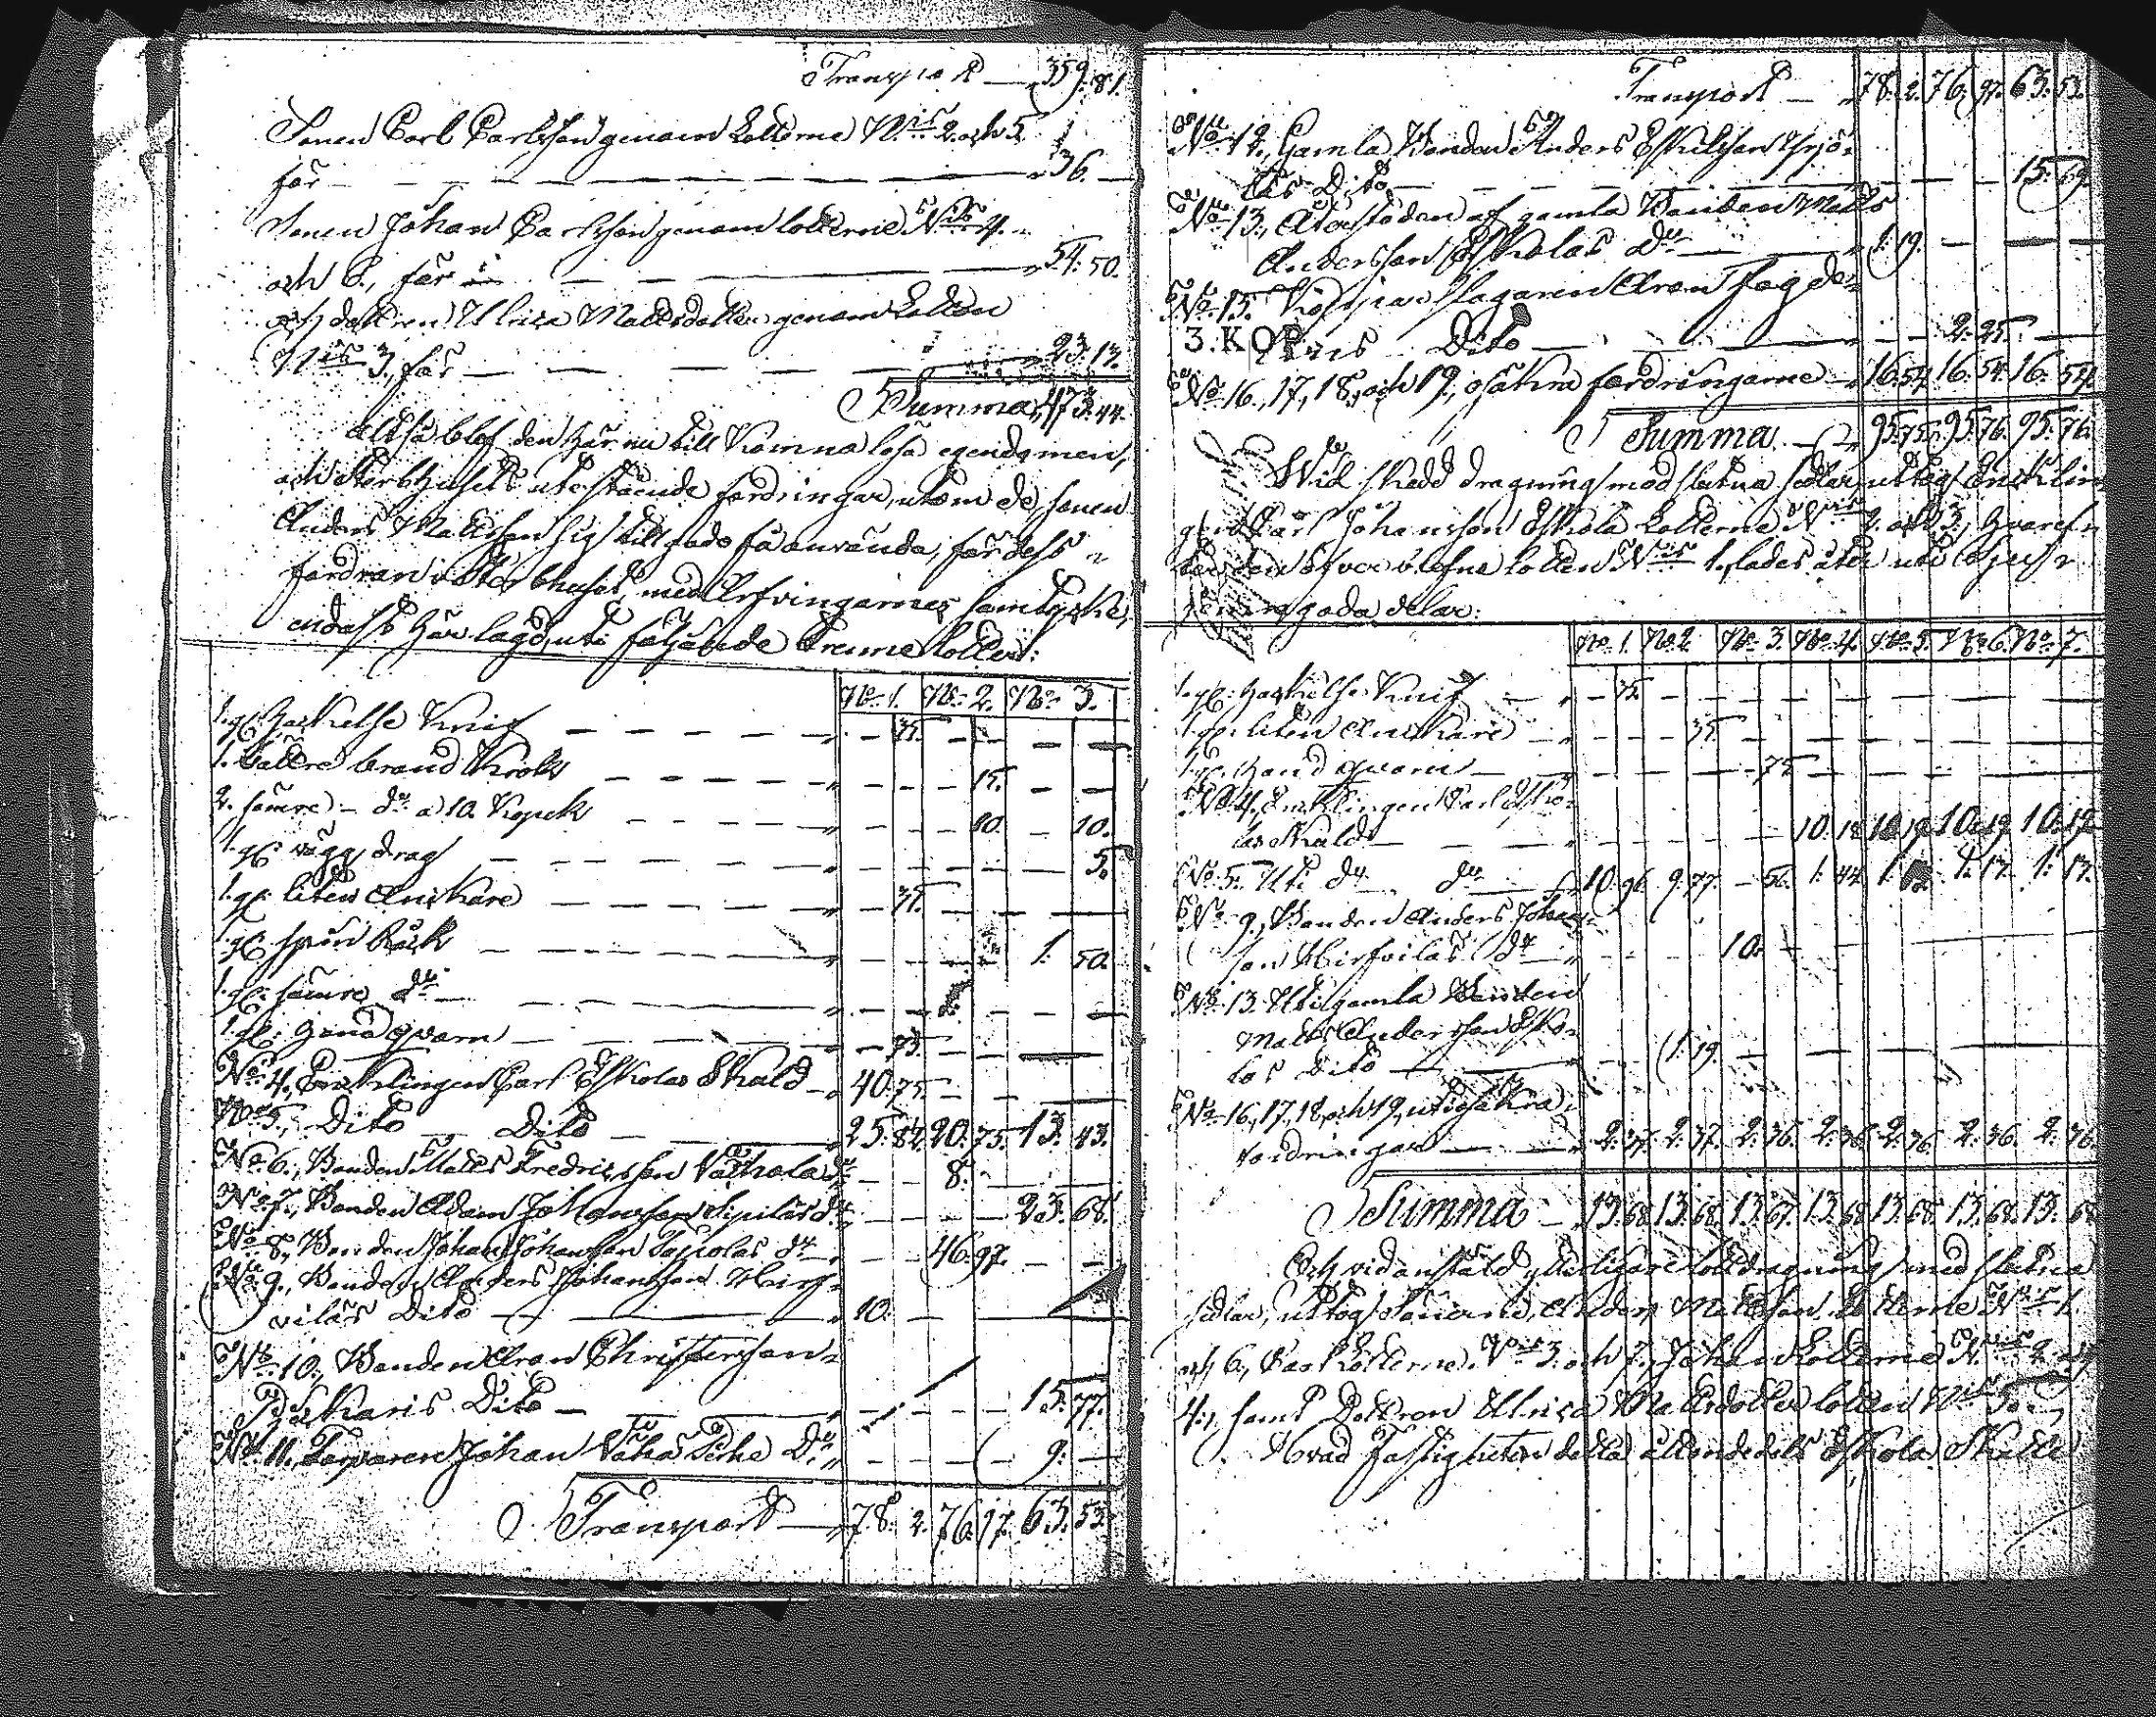 Transport — 359. 81.
Sonen Carl Carlsson genom Lotterne N:is 2. och 5.
för — 36. —
Sonen Johan Carlsson genom lotterne N:is 4.
och 6., för — 54. 50.
och dottren Ulrica Mattsdotter genom Lotten
N:is 3, för — 23. 13.
Summa 473. 44.
Altså blef den här nu till komna lösa egendomen,
och Sterbhusets utestående fordringar, utom de, sonen
Anders Mattsson sig till godo få använda, för dess
fordran i Sterbhuset, med Arfvingarnes samtycke,
endast här lagd, uti följande trenne lotter:
No 1. No 2. No 3.
1. st. Hackelse Knif — 35.
1. bättre brand Krok — 15.
2. sämre d:o a 10. Kopek — 10. — 10.
1. st. vägg drag — 5.
1. st. liten Anskare — 35.
1. st. spin Råck — 1. 50.
1. st. sämre d:o
1. st. handqvarn — 75.
No 4., Enklingen Carl Eskolas Skuld 40. 75.
No 5., Dito Dito 25. 82. 20. 75. 13. 43.
No 6., Bonden Matts Fredricsson d:o — 8.
No 7., Bonden Adam Johansson Sipilas d:o — 23. 68.
No 8., Bonden Johan Johansson d:o — 46. 97.
No 9., Bonden Anders Johansson Hirf-
vilas Dito — 10. —
No 10., Bonden Aron Christersson
Dito — 15. 77.
No 11., Torparen Johan D:o — 9. —
Transport — 78. 2. 76. 97. 63. 53.
Transport — 78. 2. 76. 97. 63. 53.
No 12., Gamla Bonden Anders Eskelsson
Dito — 15. 69.
No 13., Återstoden af gamla Bonden Matts
Andersson Eskolas D:o — 1. 19.
No 15. Aron
3. KOP. Dito — 2. 25.
No 16., 17., 18., och 19., osäkra fordringarne — 16. 54. 16. 54. 16. 54.
Summa — 95. 75. 95. 76. 95. 76.
Wid skedd dragning med slutna sedlar, uttog Enklin-
gen Carl Johansson Eskola Lotterne N:is 2. och 3., hvarefter
den öfver blefne lotten N:is 1., lades åter uti sju
delar:
No 1. No 2. No 3. No 4. No 5. No 6. No 7.
1. st. Hackelse Knif — 35.
1. st. liten Anskare — 35.
1. st. Handqvarn — 75.
No 4., Enklingen Carl Esko-
las Skuld — 10. 18. 10. 19. 10. 19. 10. 19.
No 5. Uti d:o d:o 10. 96. 9. 77. — 56. 1. 44. 1. 1. 17. 1. 17.
No 9., Bonden Anders Johans-
son Hirfvilas d:o — 10.
No 13. Uti gamla Bonden
Matts Andersson Esko-
las Dito — 1. 19.
No 16, 17, 18, och 19, uti osäkra
fordringar — 2. 37. 2. 37. 2. 36. 2. 36. 2. 36. 2. 36. 2. 36.
Summa — 13. 68. 13. 68. 13. 67. 13. 68. 13. 68. 13. 68. 13. 68.
Och vid anstäld ytterligare lottdragning med slutna
sedlar, uttog Sönerne, Anders Mattsson Lotterne N:is 1.
och 6., Carl Lotterne N:is 3. och 7., Johan Lotterne N:is 2. och
4., samt Dottren Ulrica Mattsdotter lotten N:is 5.
Hvad fastigheten detta åttondedels Eskola Skatte